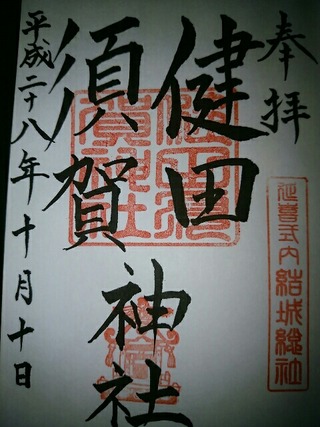 奉拝
延喜式内 結城総社
健田
須賀
神社
平成二十八年十月十日